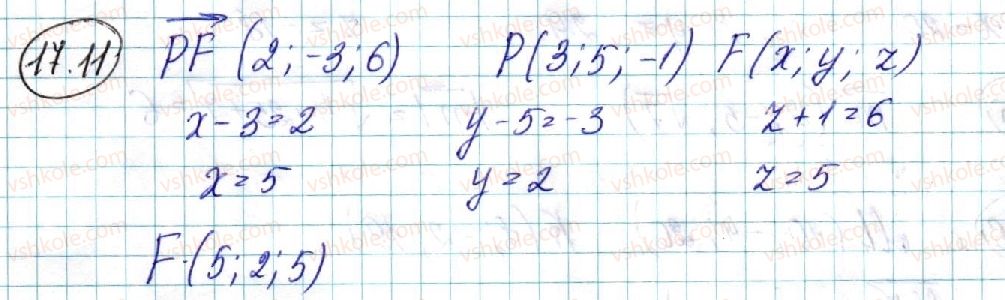 17.11 PF (2; -3; 6) P(3; 5; -1) F(x; y; z)
x - 3 = 2 y - 5 = -3 z + 1 = 6
x = 5 y = 2 z = 5
F (5; 2; 5)